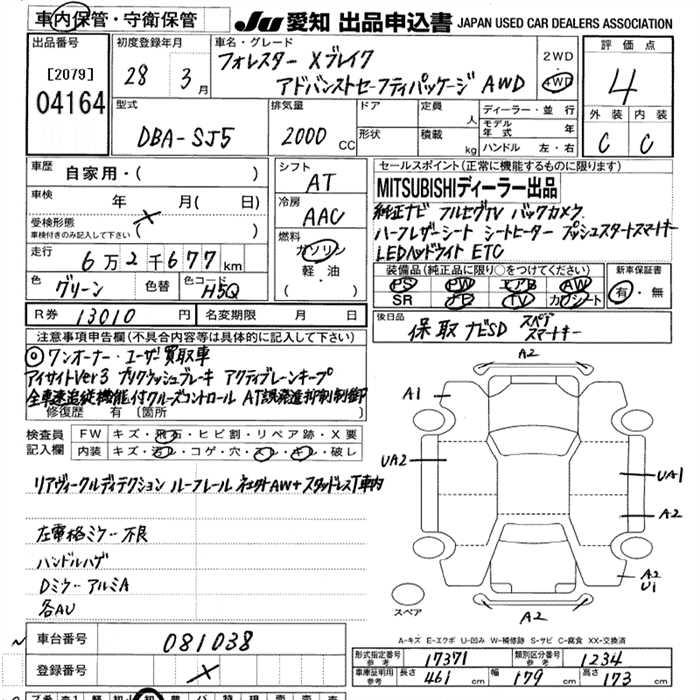 車内保管・守衛保管
JU 愛知 出品申込書 JAPAN USED CAR DEALERS ASSOCIATION
出品番号
[2079]
04164
初度登録年月
28 3月
車名・グレード
フォレスター Xブレイク
アドバンストセーフティパッケージ AWD
2WD
4WD
評価点
4
外装 内装
C C
型式
DBA-SJ5
排気量
2000 CC
ドア
形状
定員 人
積載 kg
ディーラー・並行
モデル年式 年
ハンドル 左・右
車歴 自家用・( )
車検 年 月( 日)
受検形態
車検付きのみ記入して下さい ( )
走行 6万2千677 km
色 グリーン 色替 色コード H5Q
シフト
AT
冷房
AAC
燃料
ガソリン
軽・油
( )
セールスポイント(正常に機能するものに限ります)
MITSUBISHIディーラー出品
純正ナビ フルセグTV バックカメラ
ハーフレザーシート シートヒーター プッシュスタートスマートキー
LEDヘッドライト ETC
装備品(純正品に限り○をつけてください)
PS PW エアB AW
SR ナビ TV カワシート
新車保証書
有・無
R券 13010 円 名変期限 月 日
後日品
保 取 ナビSD スペア
スマートキー
注意事項申告欄(不具合内容等は具体的に記入して下さい)
◎ワンオーナー・ユーザー買取車
アイサイトVer3 プリクラッシュブレーキ アクティブレーンキープ
全車速追従機能付クルーズコントロール AT誤発進抑制制御
修復歴 有 〔箇所 〕
検査員記入欄
FW キズ・飛石・ヒビ割・リペア跡・X要
内装 キズ・汚レ・コゲ・穴・スレ・キレ・破レ
リアヴィークルディテクション ルーフレール 社外AW+スタッドレスT車内
左電格ミラー不良
ハンドルハゲ
Dミラー アルミA
各AU
A2
A1
UA2
UA1
A2
A2
U1
A2
スペア
A-キズ E-エクボ U-凹み W-補修跡 S-サビ C-腐食 XX-交換済
車台番号 081038
登録番号
形式指定番号 参考 17371 類別区分番号 参考 1234
車庫証明用 参考 長さ 461 cm 幅 179 cm 高さ 173 cm